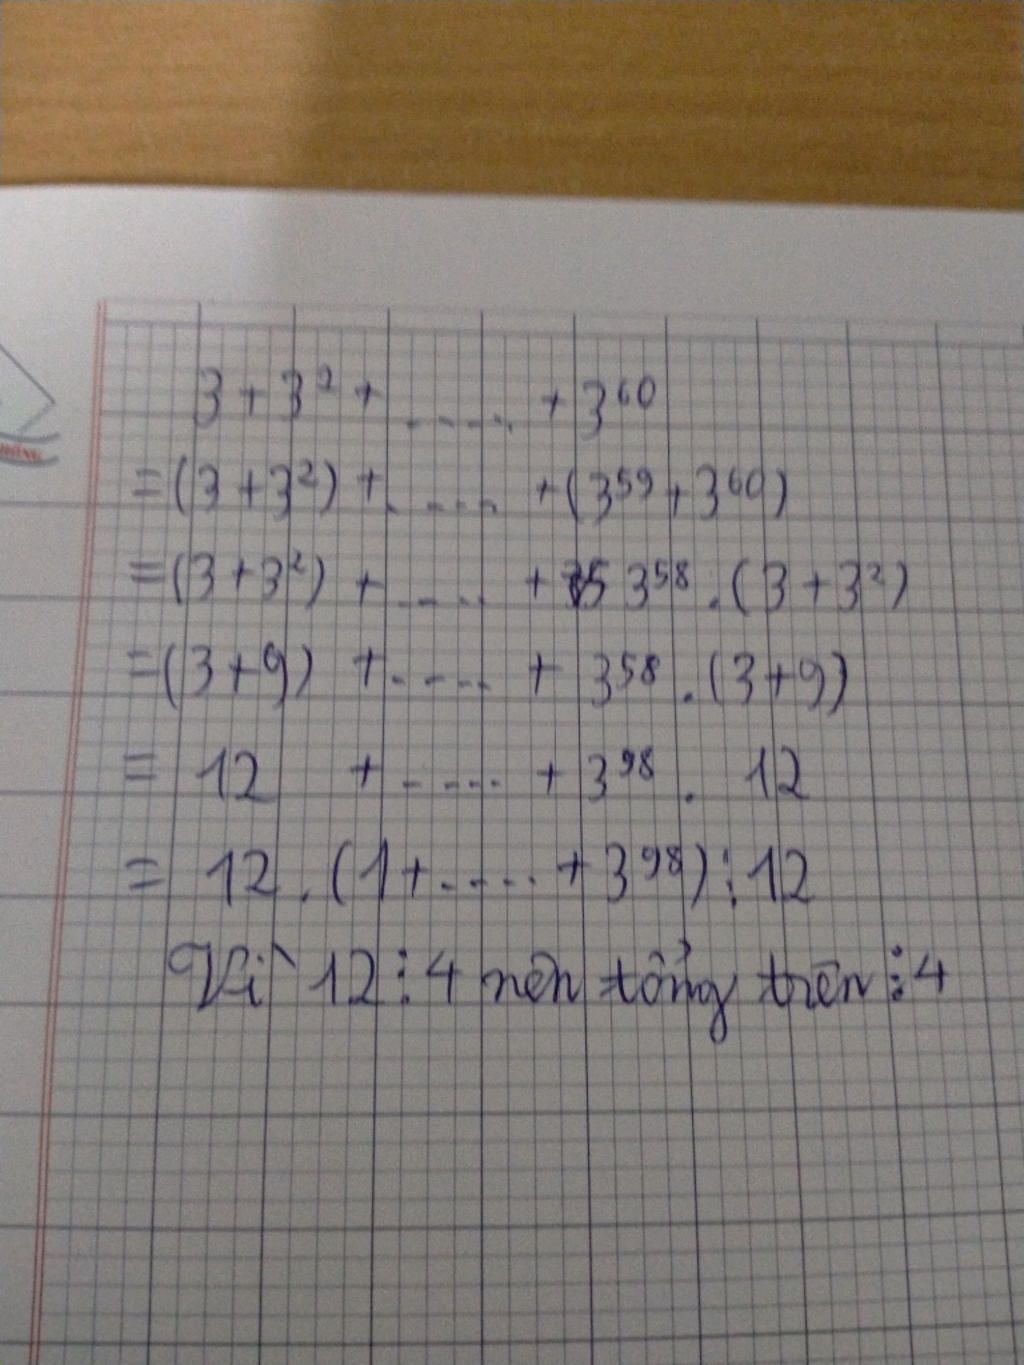 3 + 3² + ..... + 3⁶⁰
= (3 + 3²) + ..... + (3⁵⁹ + 3⁶⁰)
= (3 + 3²) + ..... + 3⁵⁸ . (3 + 3²)
= (3 + 9) + ..... + 3⁵⁸ . (3 + 9)
= 12 + ..... + 3⁹⁸ . 12
= 12 . (1 + ..... + 3⁹⁸) ⋮ 12
Vì 12 ⋮ 4 nên tổng trên ⋮ 4